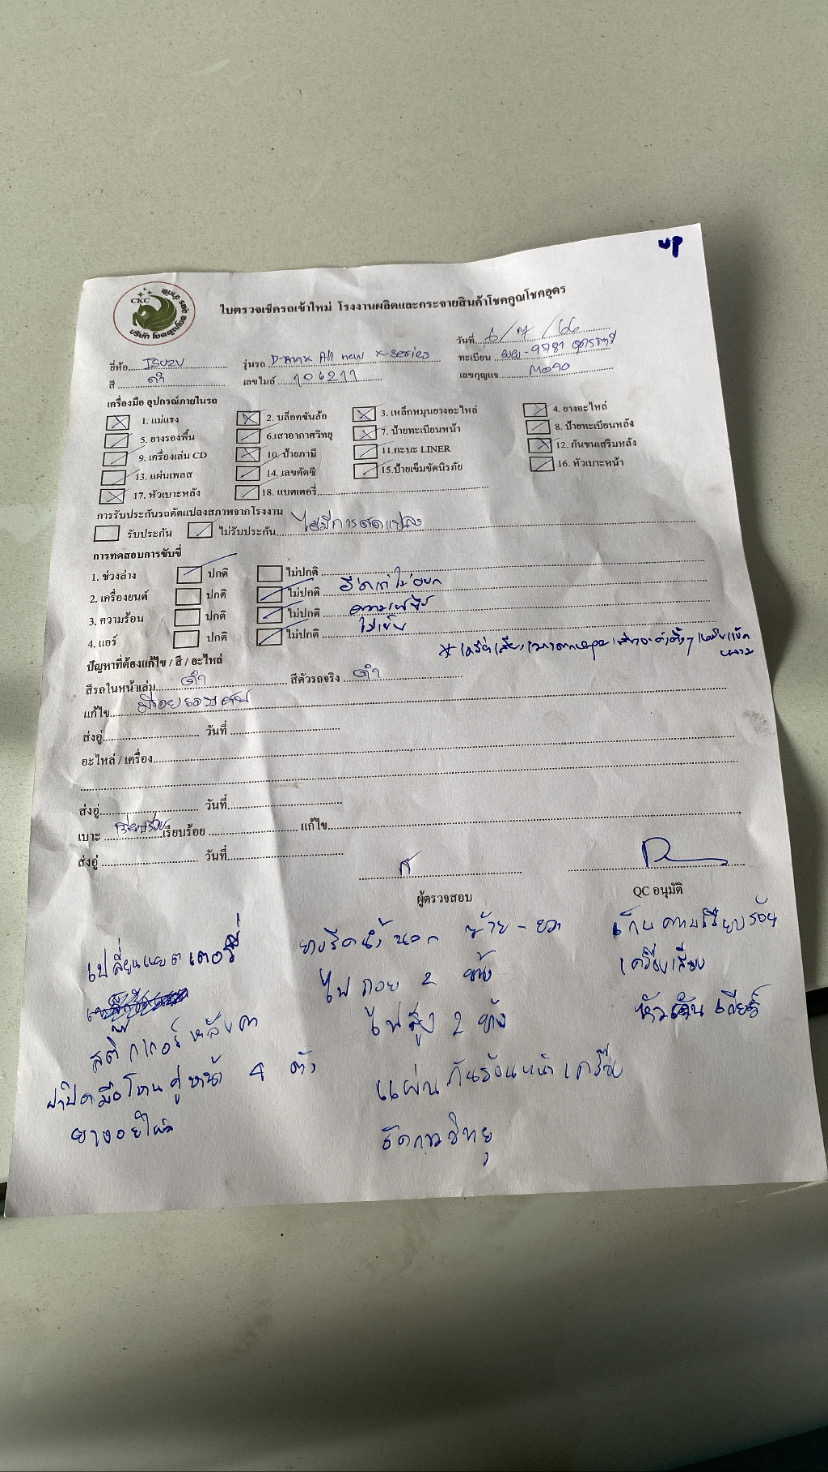 up
CKC
ใบตรวจเช็ครถเข้าใหม่ โรงงานผลิตและกระจายสินค้าโชคคูณโชคอุดร
วันที่
ยี่ห้อ ISUZU รุ่นรถ D-max All new x-series ทะเบียน
สี ดำ เลขไมล์ เลขกุญแจ M090
เครื่องมือ อุปกรณ์ภายในรถ
1. แม่แรง 2. บล็อคขันล้อ 3. เหล็กหมุนยางอะไหล่ 4. ยางอะไหล่
5. ยางรองพื้น 6.เสาอากาศวิทยุ 7. ป้ายทะเบียนหน้า 8. ป้ายทะเบียนหลัง
9. เครื่องเล่น CD 10. ป้ายภาษี 11.กะบะ LINER 12. กันชนเสริมหลัง
13. แผ่นเพลส 14. เลขคัดซี 15.ป้ายเข็มขัดนิรภัย 16. หัวเบาะหน้า
17. หัวเบาะหลัง 18. แบตเตอรี่
การรับประกันรถดัดแปลงสภาพจากโรงงาน
รับประกัน ไม่รับประกัน ไม่มีการดัดแปลง
การทดสอบการขับขี่
1. ช่วงล่าง ปกติ ไม่ปกติ
2. เครื่องยนต์ ปกติ ไม่ปกติ อืดเร่งไม่ออก
3. ความร้อน ปกติ ไม่ปกติ
4. แอร์ ปกติ ไม่ปกติ ไม่เย็น
ปัญหาที่ต้องแก้ไข / สี / อะไหล่
สีรถในหน้าเล่ม ดำ สีตัวรถจริง ดำ
แก้ไข มีรอยรอบคัน
ส่งอู่ วันที่
อะไหล่ / เครื่อง
ส่งอู่ วันที่
เบาะ เรียบร้อย เรียบร้อย แก้ไข
ส่งอู่ วันที่
ผู้ตรวจสอบ QC อนุมัติ
เปลี่ยนแบตเตอรี่
สติ๊กเกอร์หลังคา
ฝาปิดมือโหนคู่หน้า 4 ตัว
ยางอะไหล่
ยางรีดน้ำนอก ซ้าย - ขวา
ไฟถอย 2 ข้าง
ไฟสูง 2 ข้าง
แผ่นกันร้อนหน้าเครื่อง
จัดการวิทยุ
เก็บความเรียบร้อย
เครื่องเสียง
หัวคันเกียร์